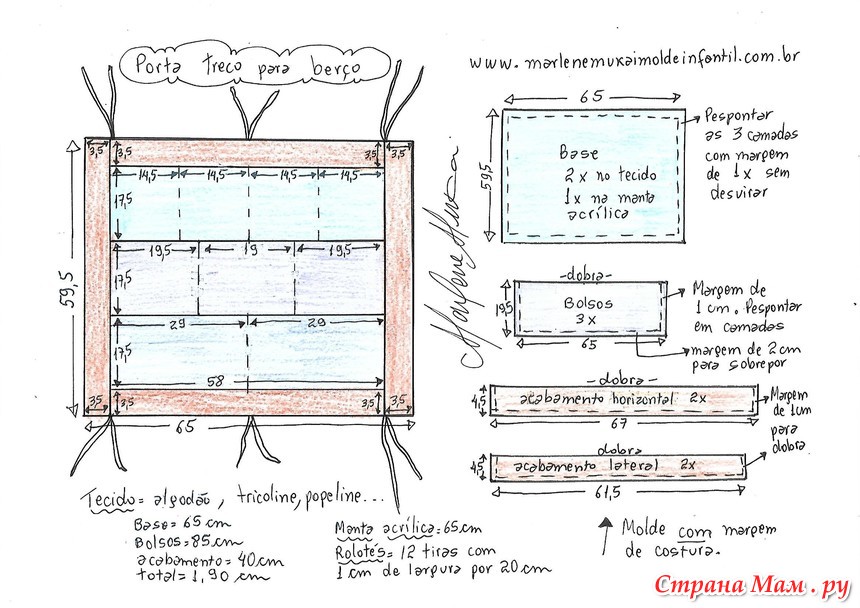 Porta treco para berço
www.marlenemukaimoldeinfantil.com.br
3,5 3,5 3,5 3,5
14,5 14,5 14,5 14,5
17,5
19,5 19 19,5
17,5
29 29
17,5
58
3,5 3,5 3,5 3,5
59,5
65
Marlene Mukai
65
59,5
Base
2x no tecido
1x na manta
acrílica
Pespontar
as 3 camadas
com margem
de 1x sem
desvirar
-dobra-
19,5
Bolsos
3x
65
Margem de
1cm. Pespontar
em camadas
margem de 2cm
para sobrepor
-dobra-
4,5
acabamento horizontal 2x
67
dobra
4,5
acabamento lateral 2x
61,5
Margem
de 1cm
para
dobra
Tecido= algodão, tricoline, popeline...
Base= 65 cm
Bolsos= 85cm
acabamento= 40cm
total= 1,90 cm
Manta acrílica= 65cm
Rolotês= 12 tiras com
1 cm de largura por 20 cm
Molde com margem
de costura.
Страна Мам.ру